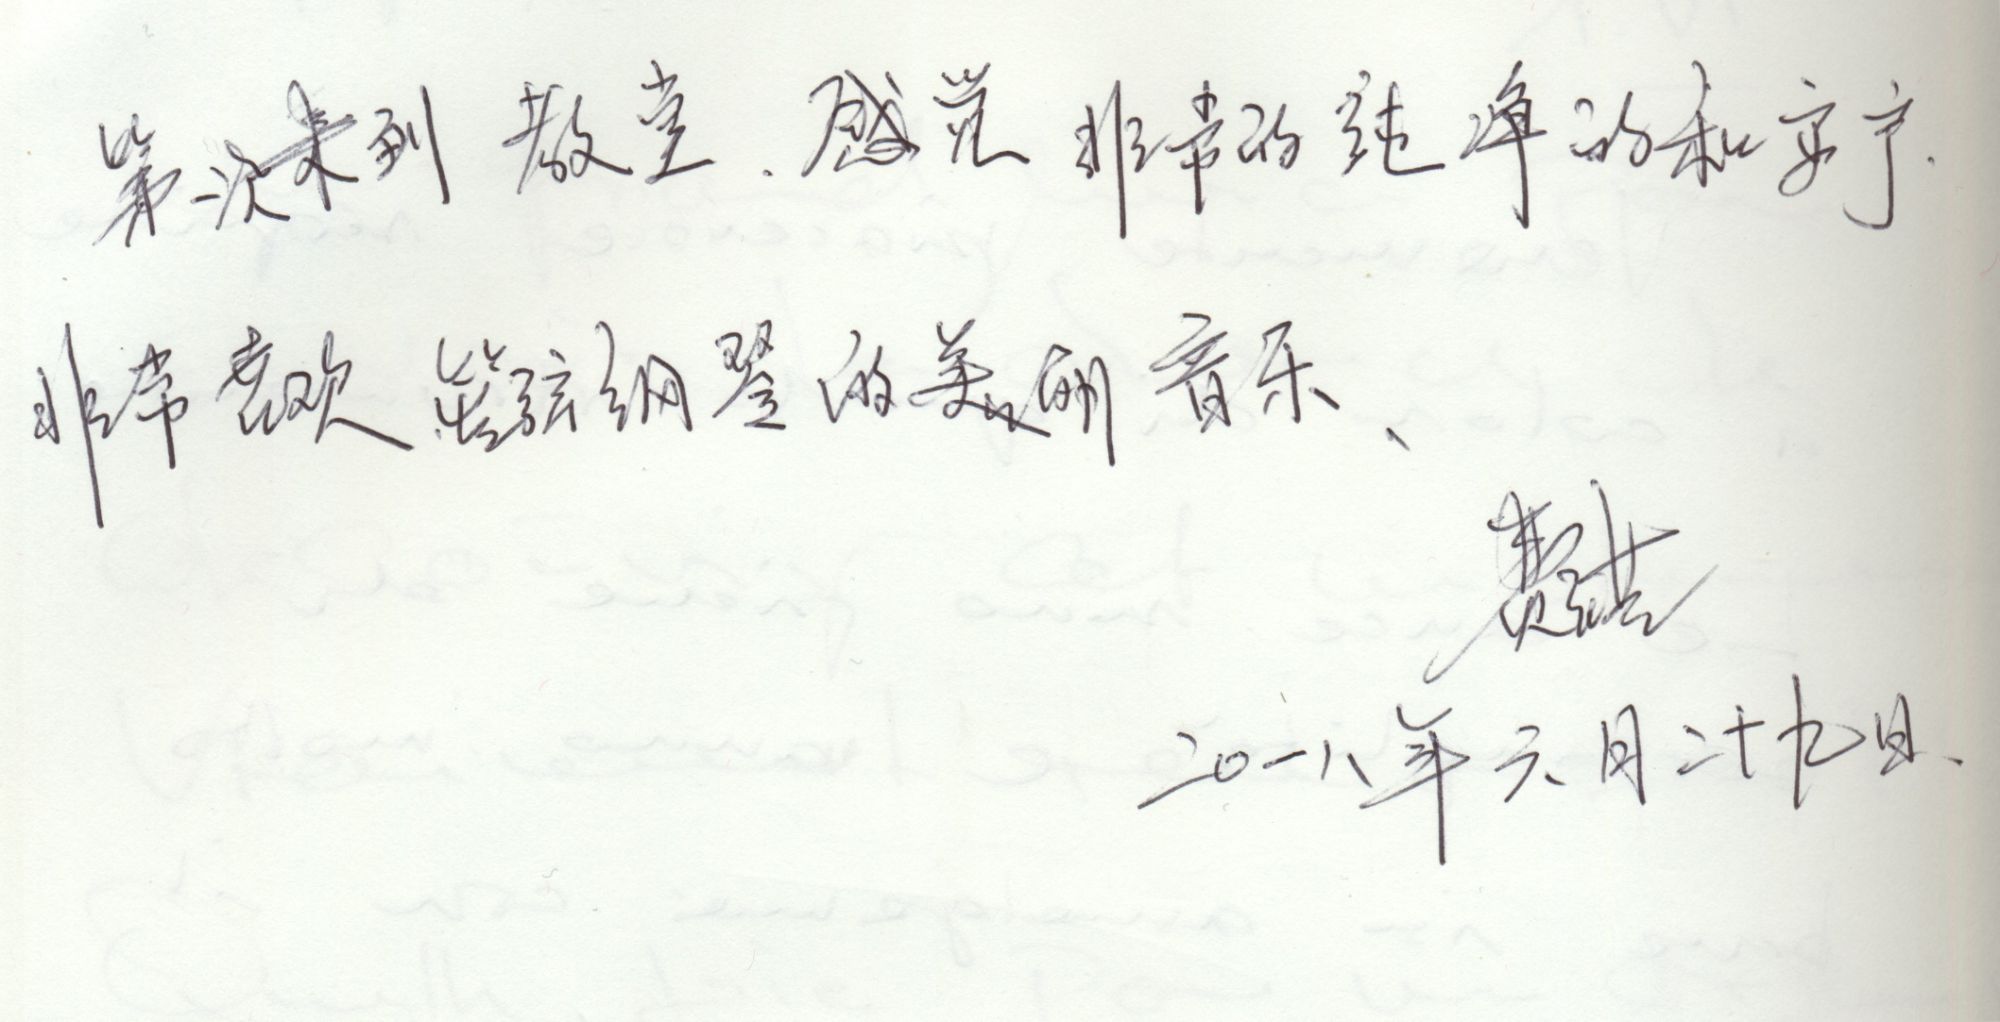 第一次来到教堂.感觉非常的纯净的和安宁.
非常喜欢 管弦钢琴的美丽音乐、
二〇一八年六月二十九日、